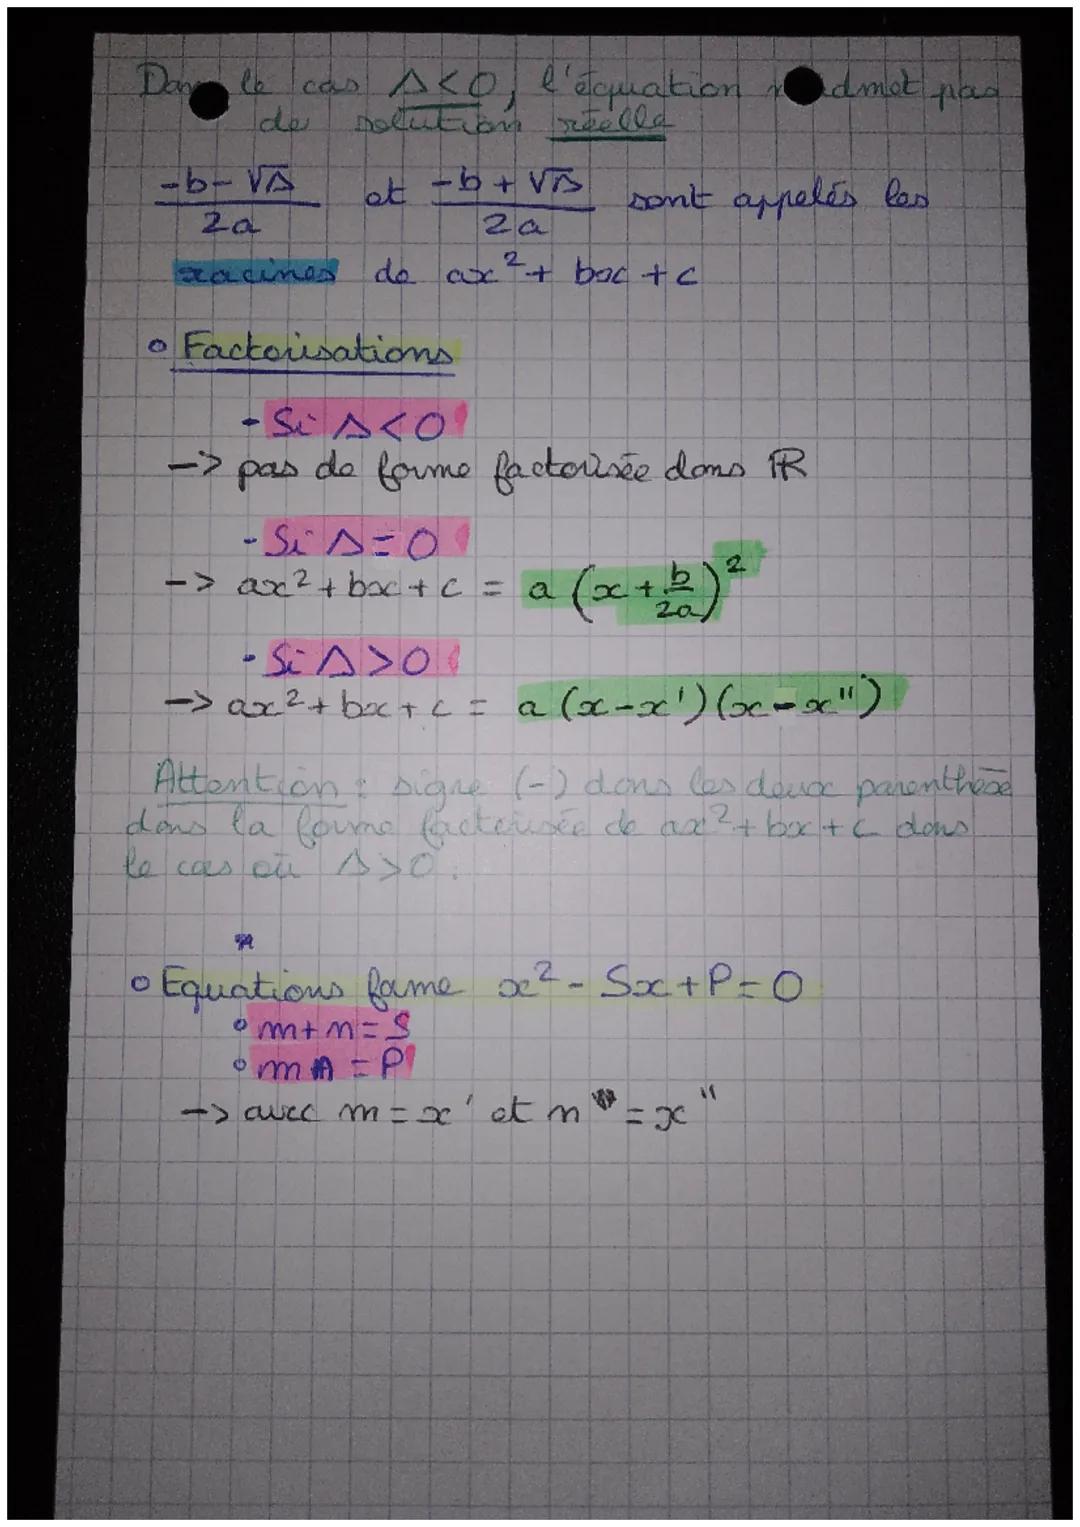 Dans le cas Δ<0, l'équation n'admet pas
de solution réelle
-b-√Δ / 2a et -b+√Δ / 2a sont appelés les
racines de ax² + bx + c
o Factorisations
- Si Δ<0
-> pas de forme factorisée dans ℝ
- Si Δ=0
-> ax² + bx + c = a (x + b/2a)²
- Si Δ>0
-> ax² + bx + c = a (x-x') (x-x'')
Attention : signe (-) dans les deux parenthèse
dans la forme factorisée de ax² + bx + c dans
le cas où Δ>0.
o Equations forme x² - Sx + P = 0
o m+n = S
o mn = P
-> avec m = x' et n = x''